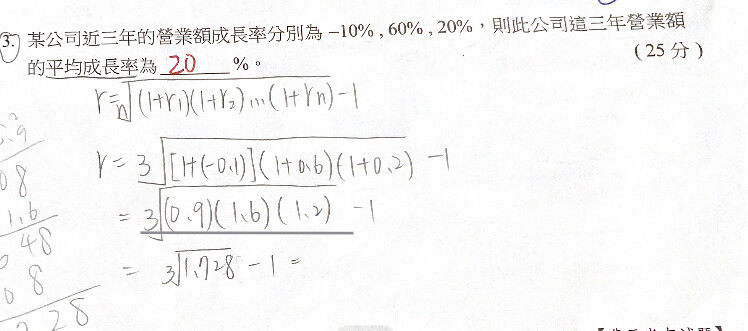 3. 某公司近三年的營業額成長率分別為 −10% , 60% , 20%，則此公司這三年營業額
的平均成長率為 20 %。 (25 分)
r = n√(1+r₁)(1+r₂)...(1+rn) −1
r = 3√[1+(-0.1)](1+0.6)(1+0.2) −1
= 3√(0.9)(1.6)(1.2) −1
= 3√1.728 −1 =
08
1.6
48
08
28